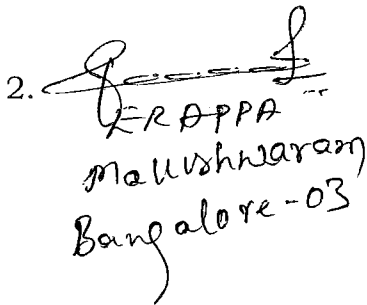 2.
ERAPPA
Malleshwaram
Bangalore-03